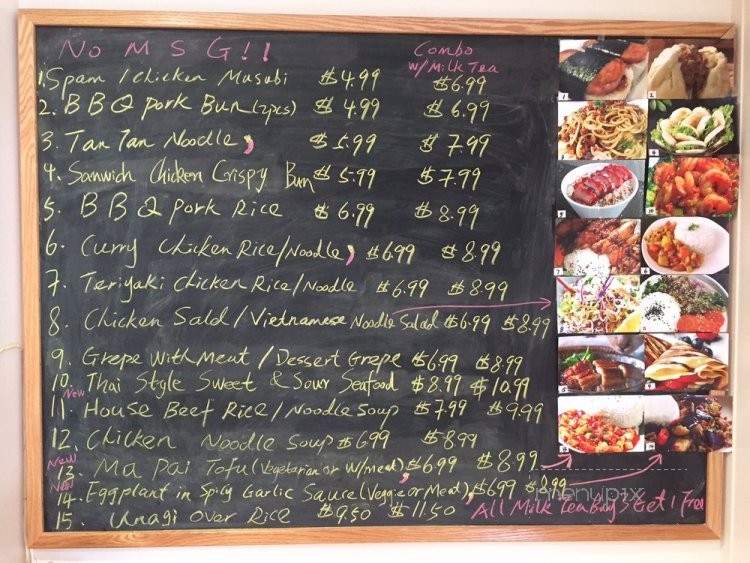 No M S G!!
Combo
w/Milk Tea
1. Spam/Chicken Musubi $4.99 $6.99
2. BBQ Pork Bun (2pcs) $4.99 $6.99
3. Tan Tan Noodle $5.99 $7.99
4. Sanwich Chicken Crispy Bun $5.99 $7.99
5. BBQ Pork Rice $6.99 $8.99
6. Curry Chicken Rice/Noodle $6.99 $8.99
7. Teriyaki Chicken Rice/Noodle $6.99 $8.99
8. Chicken Sald/Vietnamese Noodle Salad $6.99 $8.99
9. Grepe With Meat/Dessert Grepe $6.99 $8.99
10. Thai Style Sweet & Sour Seafood $8.99 $10.99
New
11. House Beef Rice/Noodle Soup $7.99 $9.99
12. Chicken Noodle Soup $6.99 $8.99
New
13. Ma Pai Tofu (Vegetarian or W/meat) $6.99 $8.99
New
14. Eggplant in Spicy Garlic Sauce (Veggie or Meat) $6.99 $8.99
15. Unagi Over Rice $9.50 $11.50
All Milk Tea Buy 3 Get 1 Free
menupix